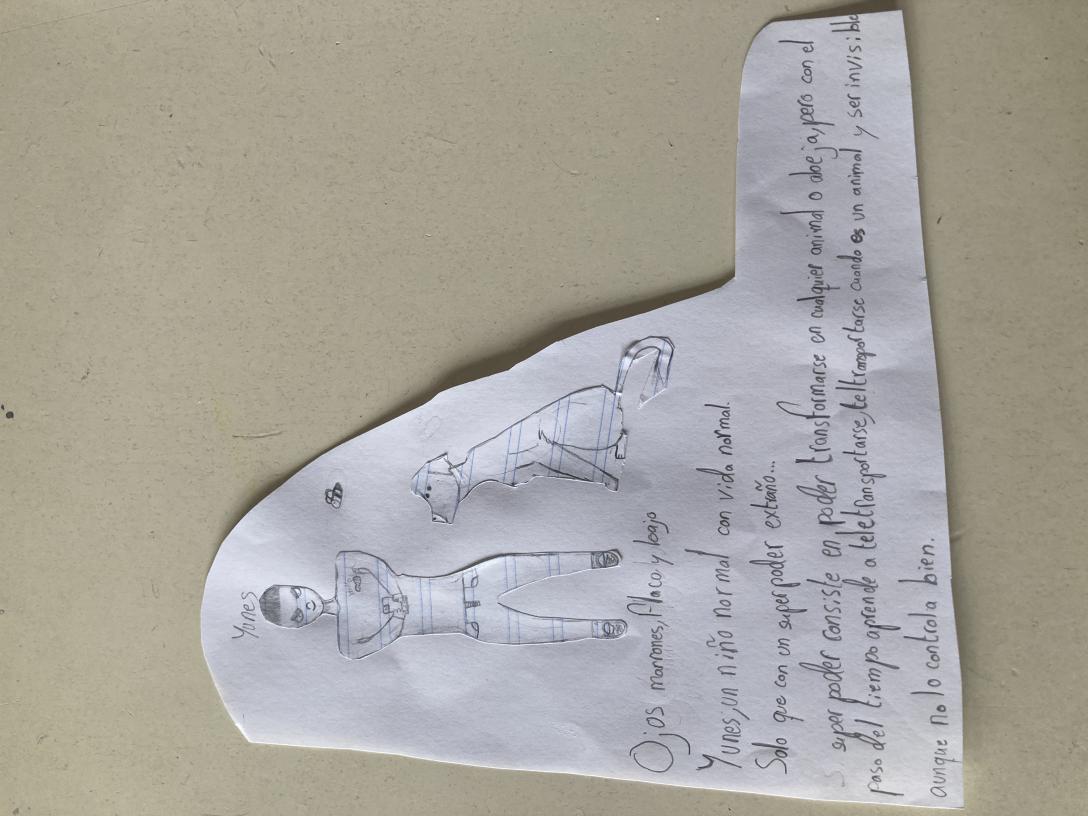 Yunes
Ojos marrones, flaco y
Yunes, un niño normal con vida normal.
Solo que con un super poder extraño...
super poder consiste en poder transformarse en cualquier animal o abeja, pero con el
paso del tiempo aprende a teletransportarse, teltransportarse cuando es un animal y ser invisible
aunque no lo controla bien.